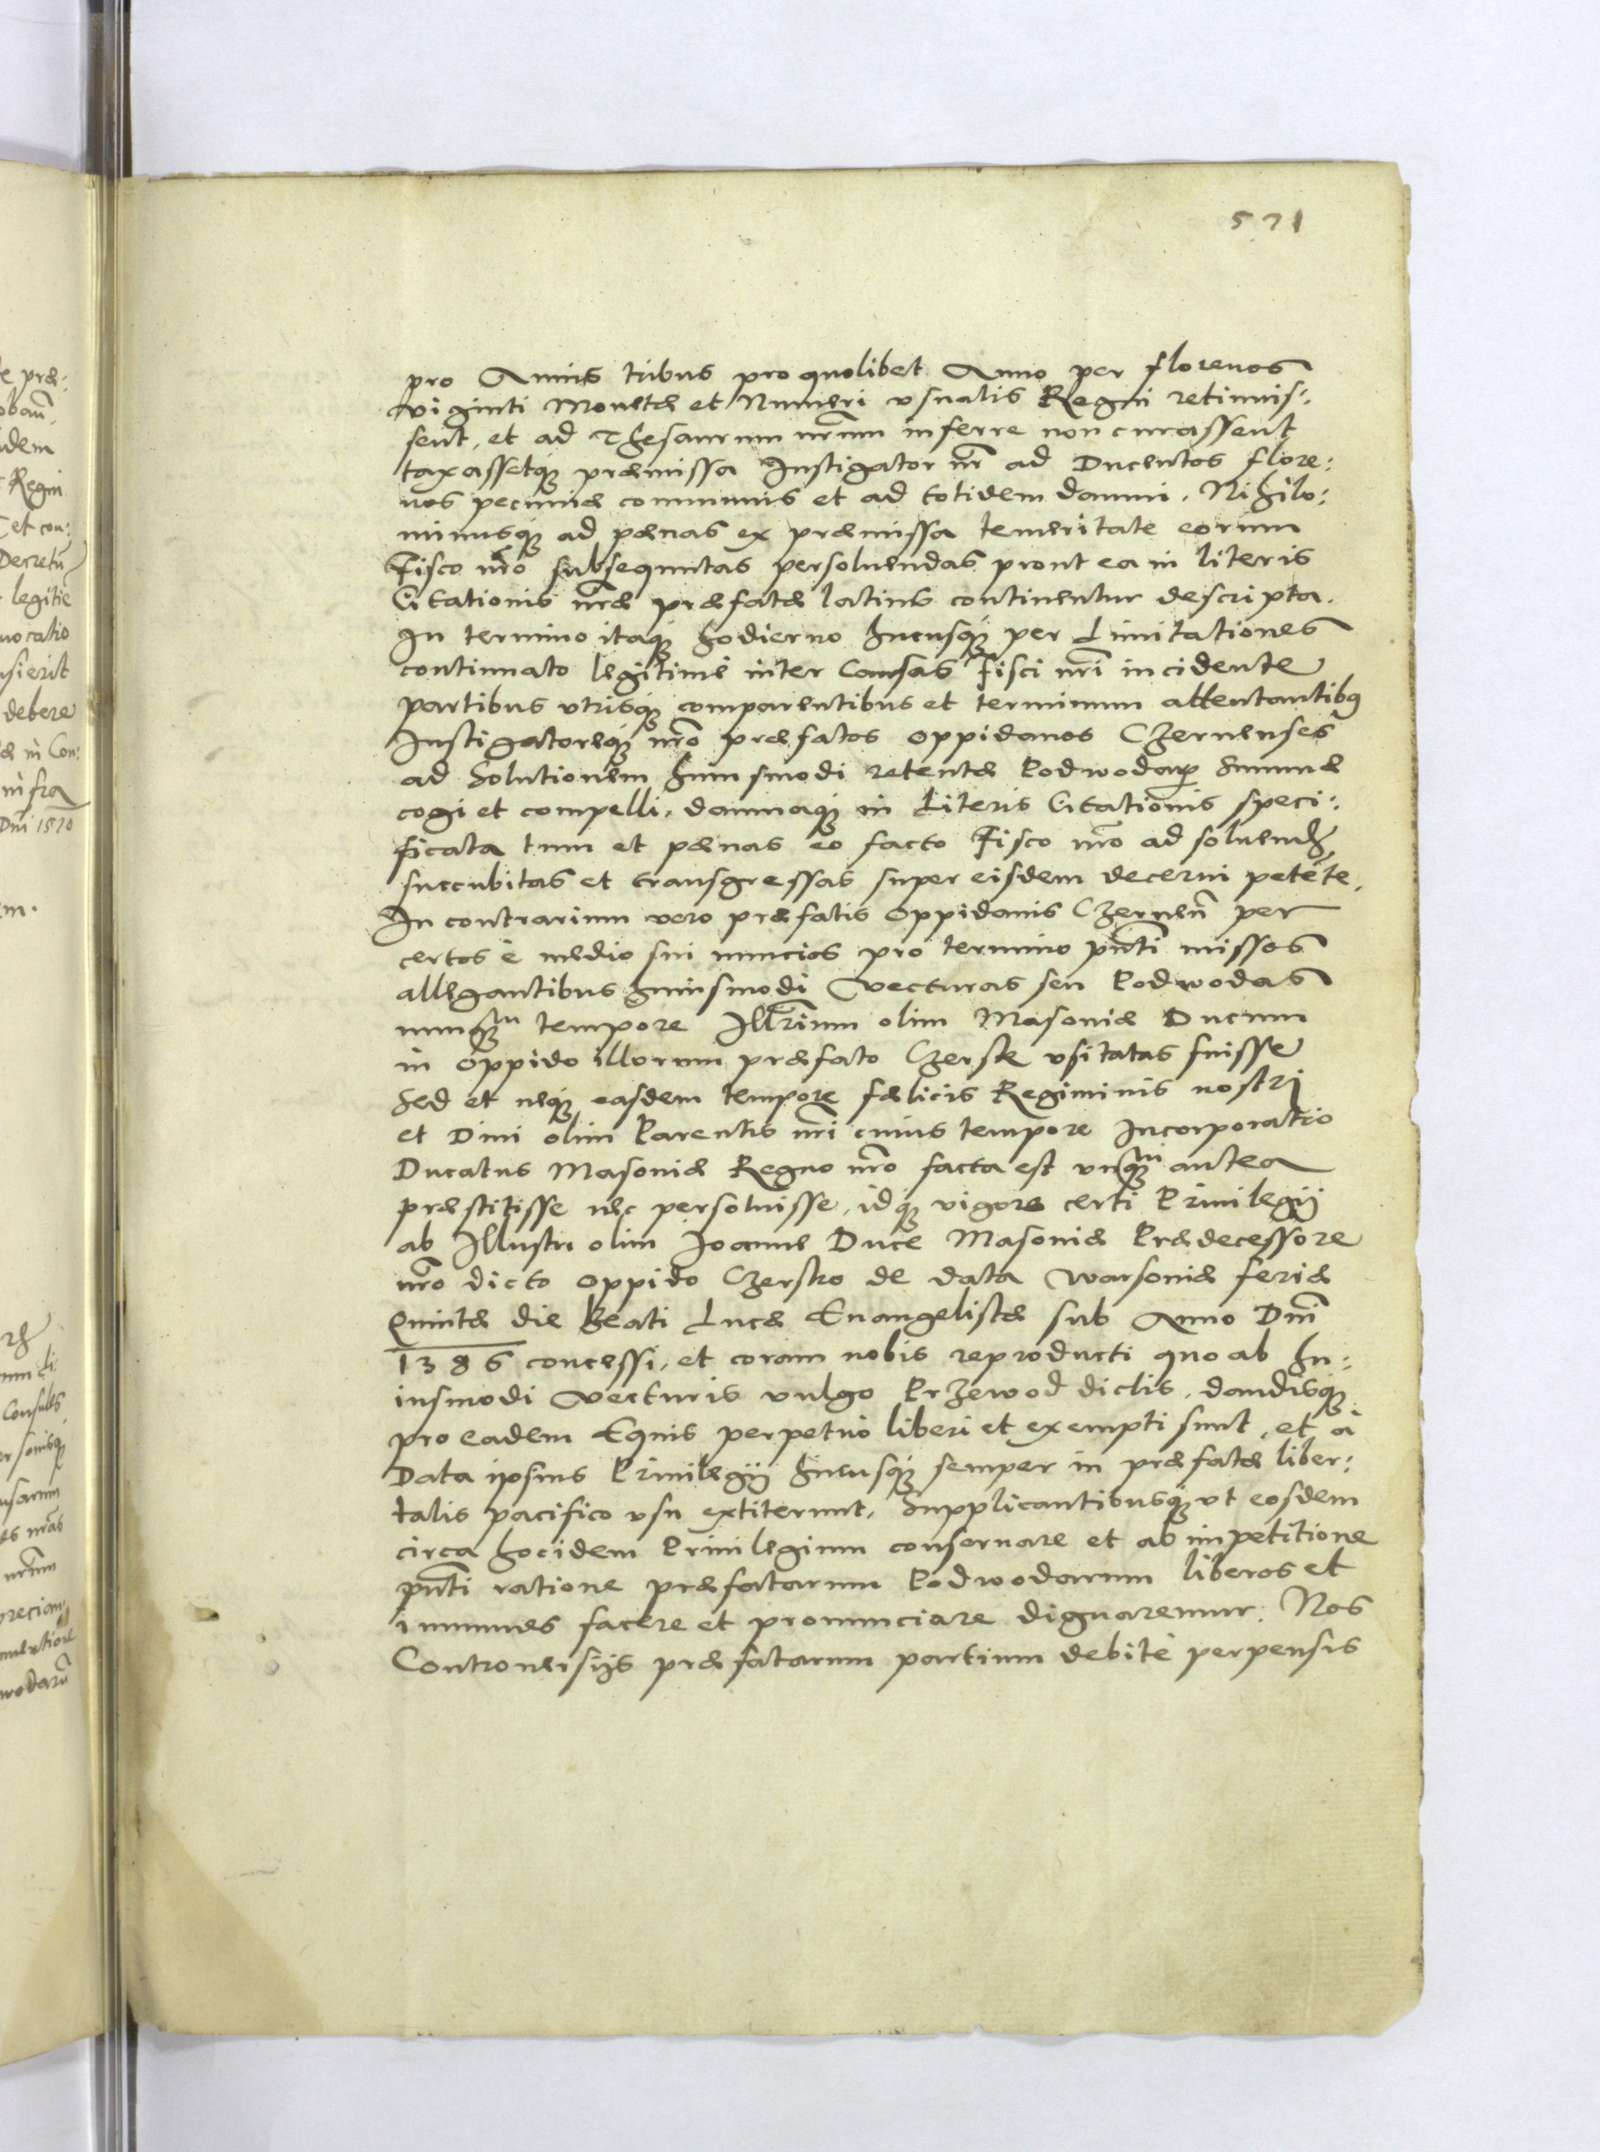 571
pro Annis tribus pro quolibet Anno per florenos
viginti Monetæ et Numeri vsualis Regni retinuis:
sent, et ad Thesaurum nrum inferre non curassent
taxassetq̃ præmissa Instigator nr ad Ducentos flore:
nos pecuniæ communis et ad totidem damni. Nihilo:
minusq̃ ad pænas ex præmissa temeritate eorum
Fisco nro subsequutas persoluendas prout ea in literis
Citationis nræ præfatæ latius continentur descripta.
In termino itaq̃ hodierno hucusq̃ per Limitationes
continuato legitime inter Causas Fisci nri incidente
partibus vtrisq̃ comparentibus et terminum attentantibq
Instigatoreq̃ nro præfatos oppidanos Czernenses
ad Solutionem huiusmodi retentæ Podwodaꝝ Summæ
cogi et compelli, damnaq̃ in Literis Citationis speci:
ficata tum et pænas eo facto Fisco nro ad soluend
succubitas et transgressas super eisdem decerni petẽte.
In contrarium vero præfatis Oppidanis Czernen̄ per
certos è medio sui nuncios pro termino pnti missos
allegantibus huiusmodi Vecturas seu Podwodas
nunq̃m tempore Illrium olim Masoniæ Ducum
in Oppido illorum præfato Czersk vsitatas fuisse
Sed et neq̃ easdem tempore fælicis Regiminis nostri
et Diui olim Parentis nri cuius tempore Incorporatio
Ducatus Masoniæ Regno nro facta est vnq̃m antea
præstitisse nec persoluisse, idq̃ vigore certi Priuilegij
ab Illustri olim Joanne Duce Masoniæ Prædecessore
nro dicto oppido Czersko de data Warsoniæ feria
Quinta die Beati Lucæ Euangelistæ sub Anno Dni
1386 concessi, et coram nobis reproducti quo ab hu:
iusmodi Vecturis vulgo Przewod dictis, dandisq̃
pro eadem Equis perpetuò liberi et exempti sunt, et à
Data ipsius Priuilegij hucusq̃ semper in præfatæ liber:
talis pacifico vsu extiterunt, Supplicantibusq̃ vt eosdem
circa hocidem Priuilegium conseruare et ab impetitione
pnti ratione præfatarum Podwodarum liberos et
immunes facere et pronunciare dignaremur. Nos
Controuersijs præfatarum partium debitè perpensis